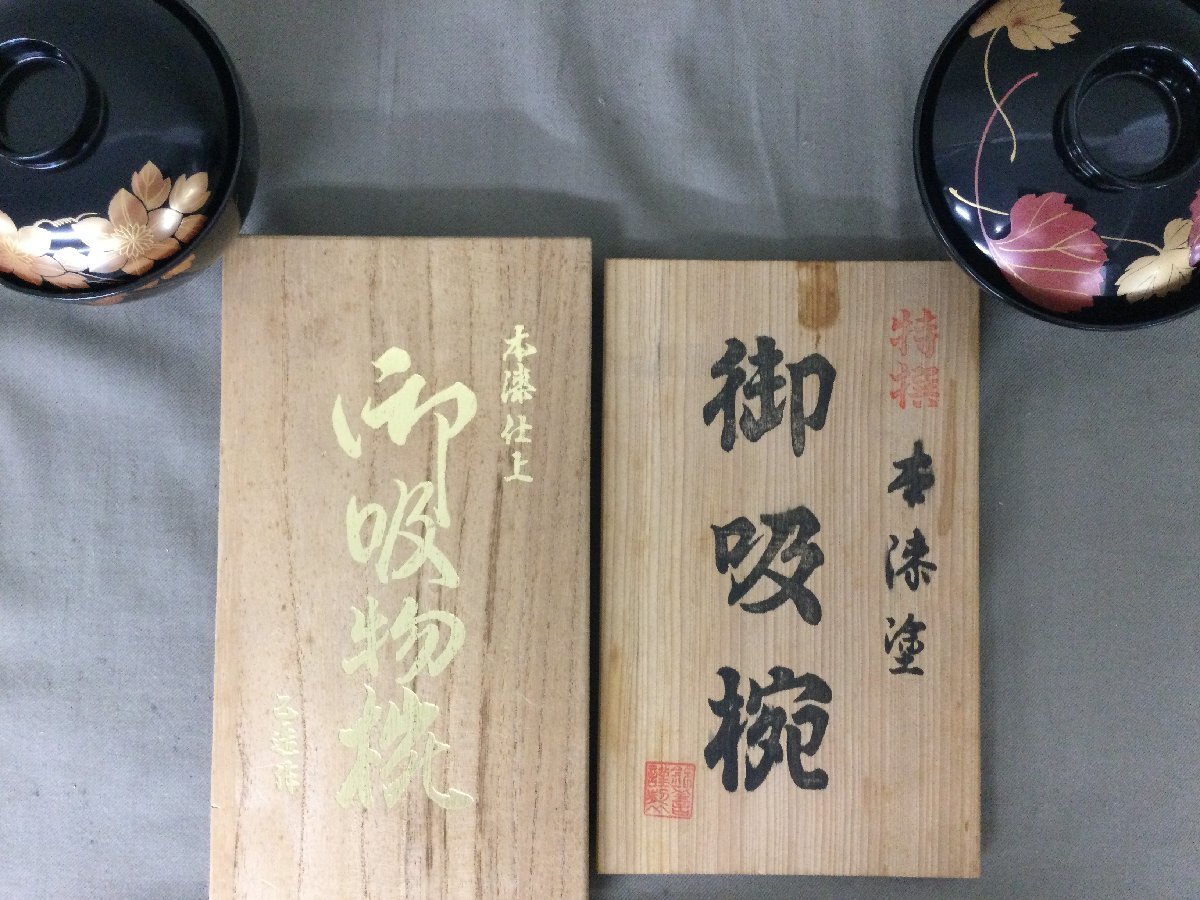 本漆仕上
御吸物椀
特撰 本漆塗
御吸椀
謹製